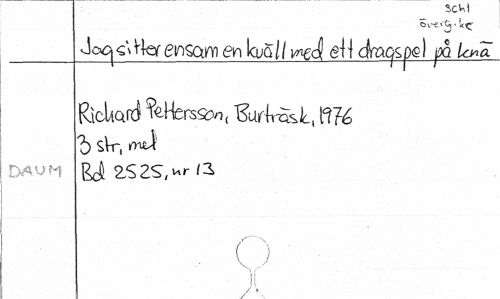 Schl
överg. ke
Jag sitter ensam en kväll med ett dragspel på knä
Richard Pettersson, Burträsk, 1976
3 str, mel
DAUM Bd 2525, nr 13